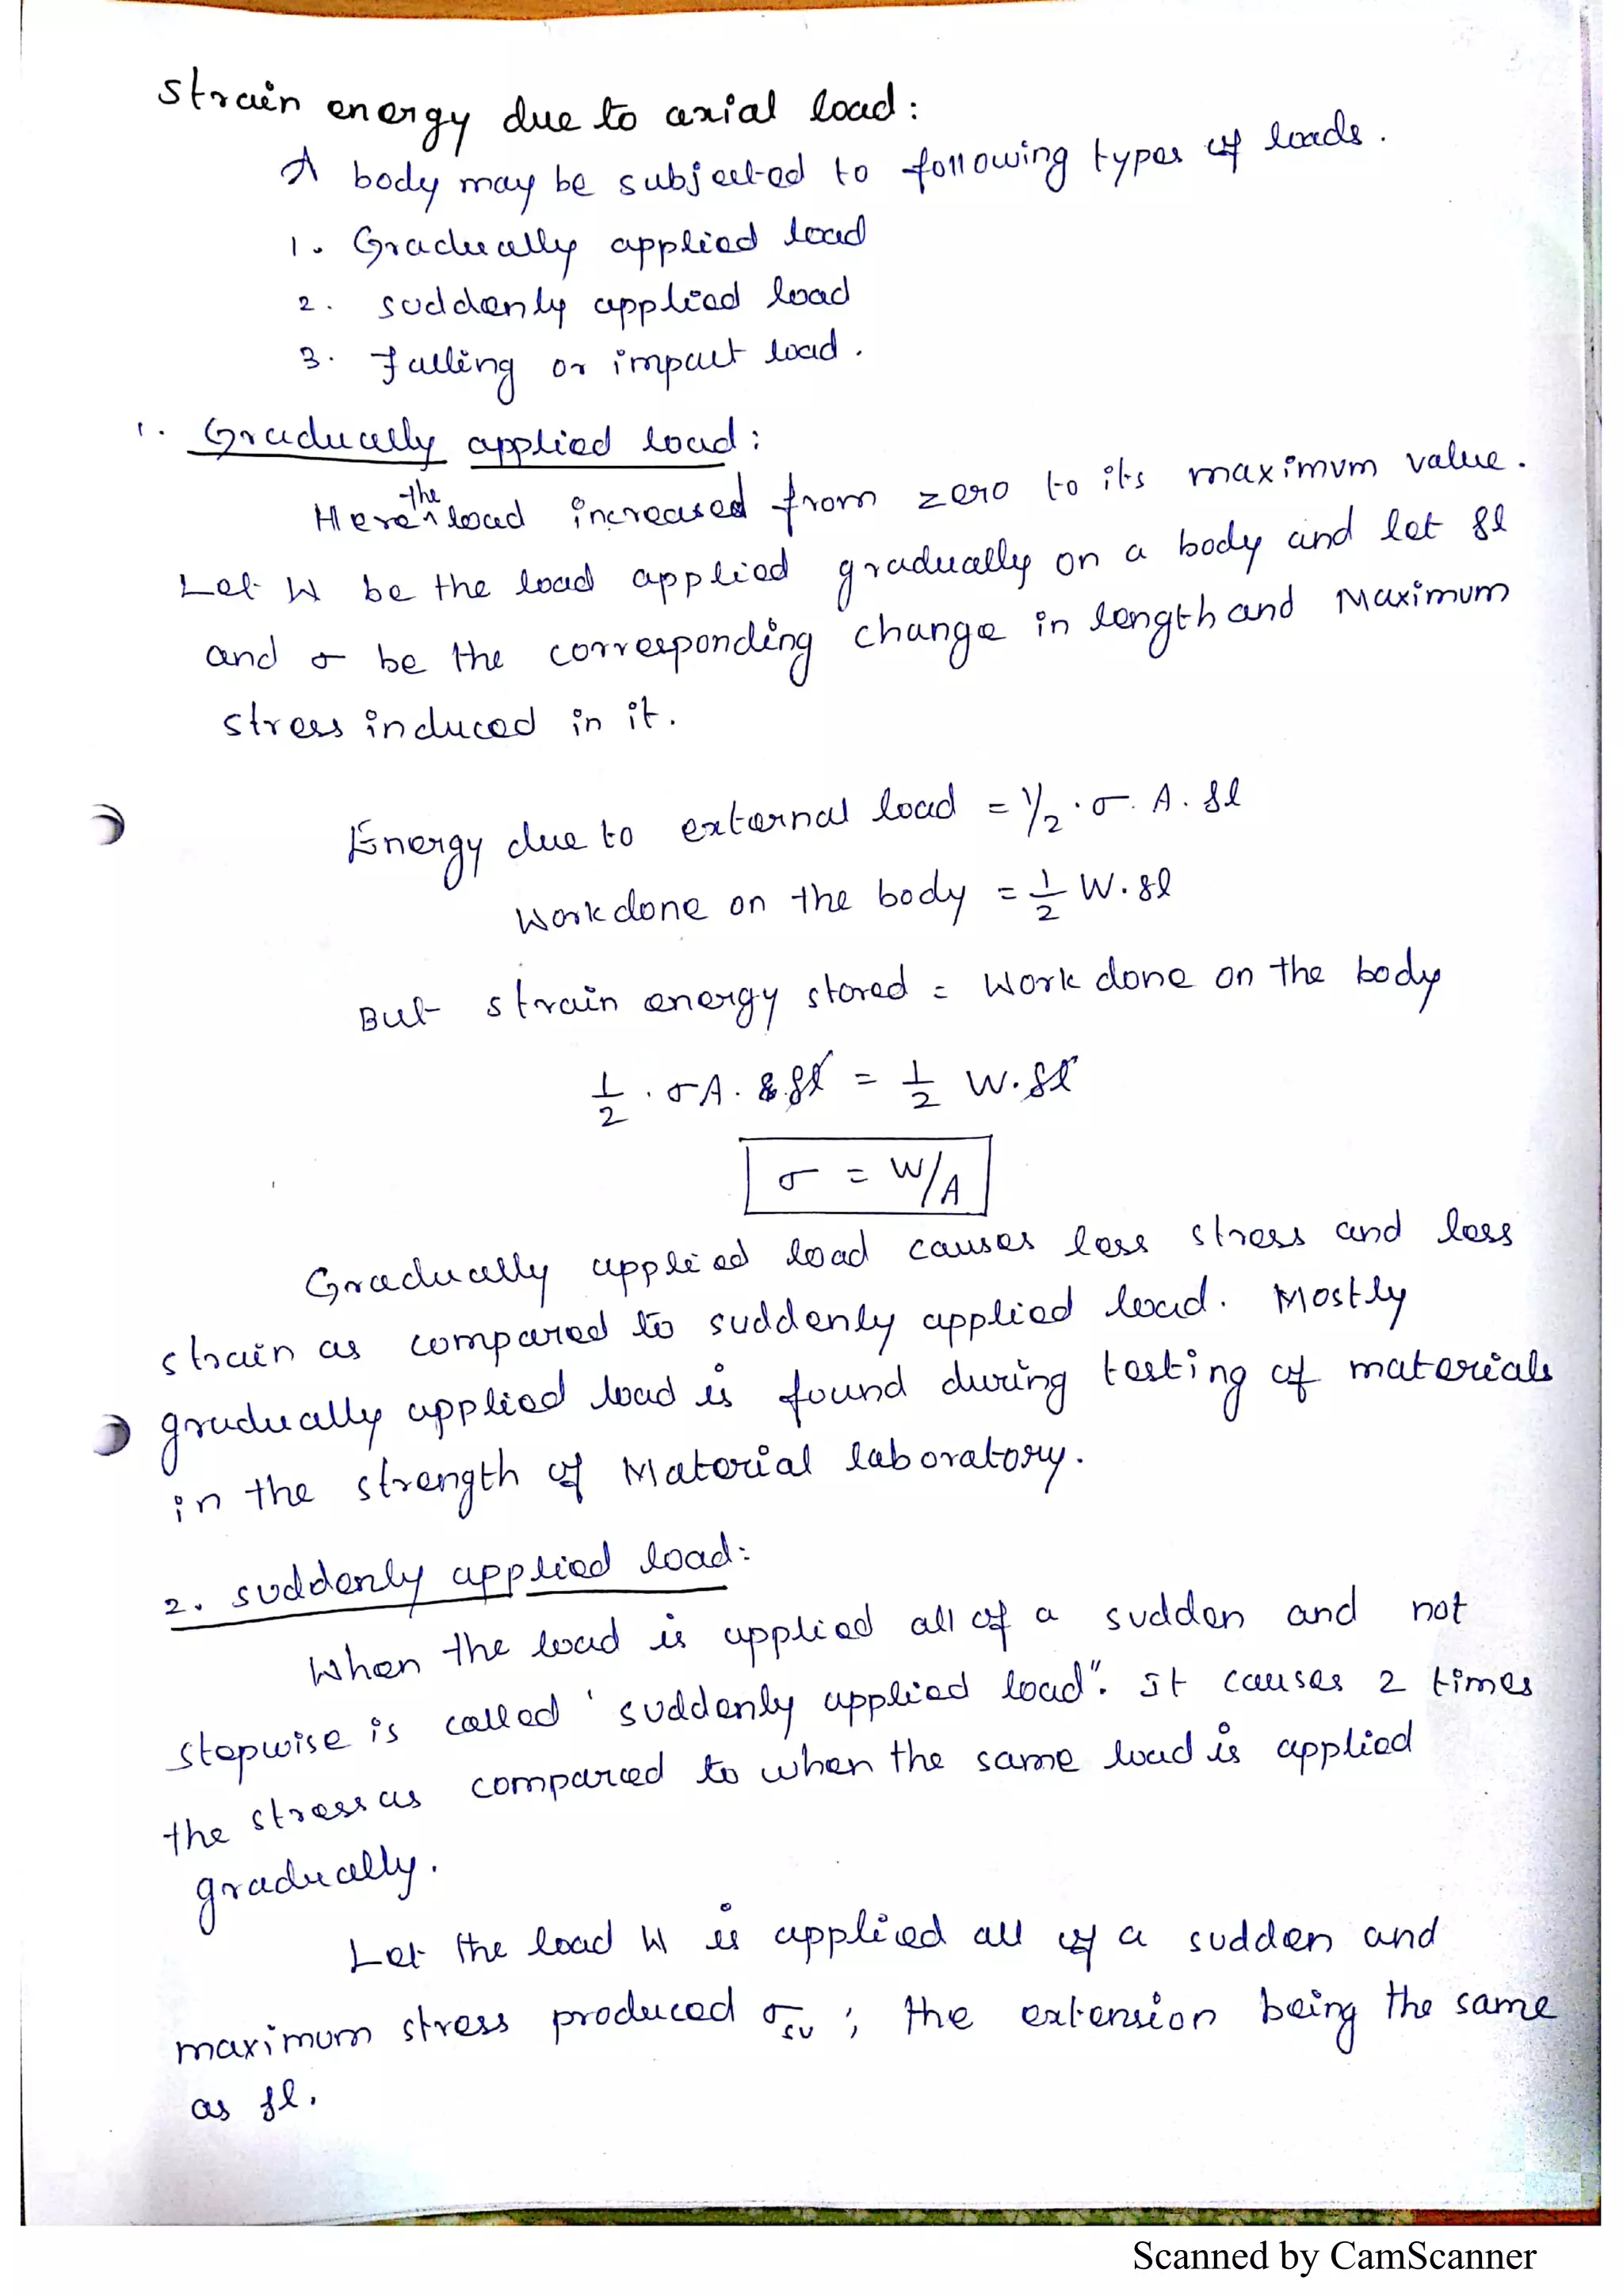 Strain energy due to axial load:
A body may be subjected to following types of loads.
1. Gradually applied load
2. suddenly applied load
3. Falling or impact load.
1. Gradually applied load:
Here the load increased from zero to its maximum value.
Let W be the load applied gradually on a body and let δl
and σ be the corresponding change in length and Maximum
stress induced in it.
Energy due to external load = 1/2 . σ. A. δl
Work done on the body = 1/2 W. δl
But strain energy stored = Work done on the body
1/2 . σA. δl = 1/2 W. δl
σ = W/A
Gradually applied load causes less stress and less
strain as compared to suddenly applied load. Mostly
gradually applied load is found during testing of materials
in the strength of Material laboratory.
2. suddenly applied load:
When the load is applied all of a sudden and not
stepwise is called 'suddenly applied load". It causes 2 times
the stress as compared to when the same load is applied
gradually.
Let the load W is applied all of a sudden and
maximum stress produced σsu ; the extension being the same
as δl.
Scanned by CamScanner